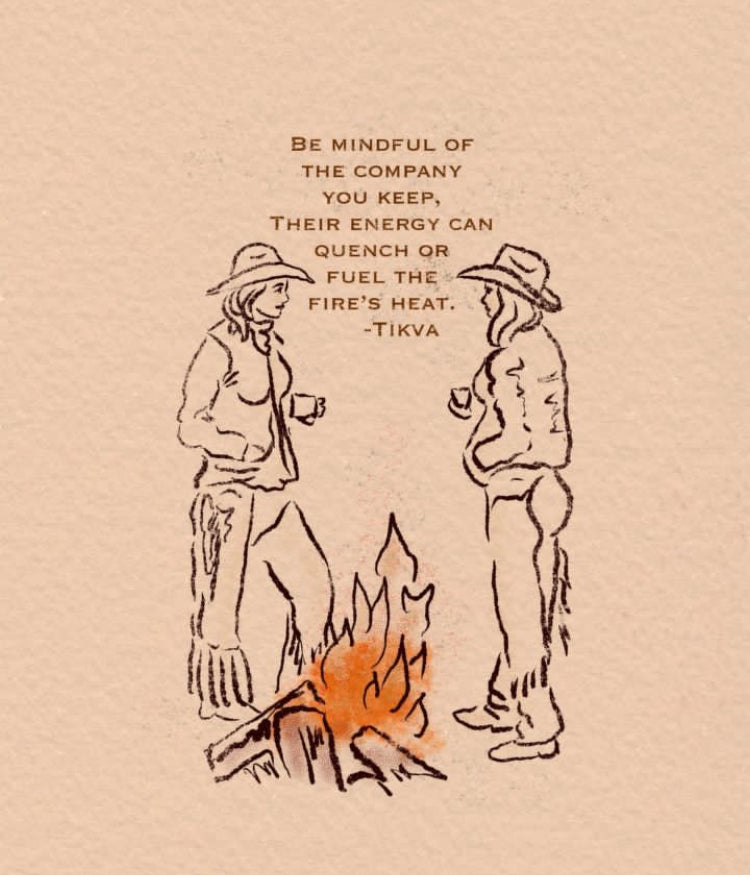 Be mindful of
the company
you keep,
Their energy can
quench or
fuel the
fire's heat.
-Tikva